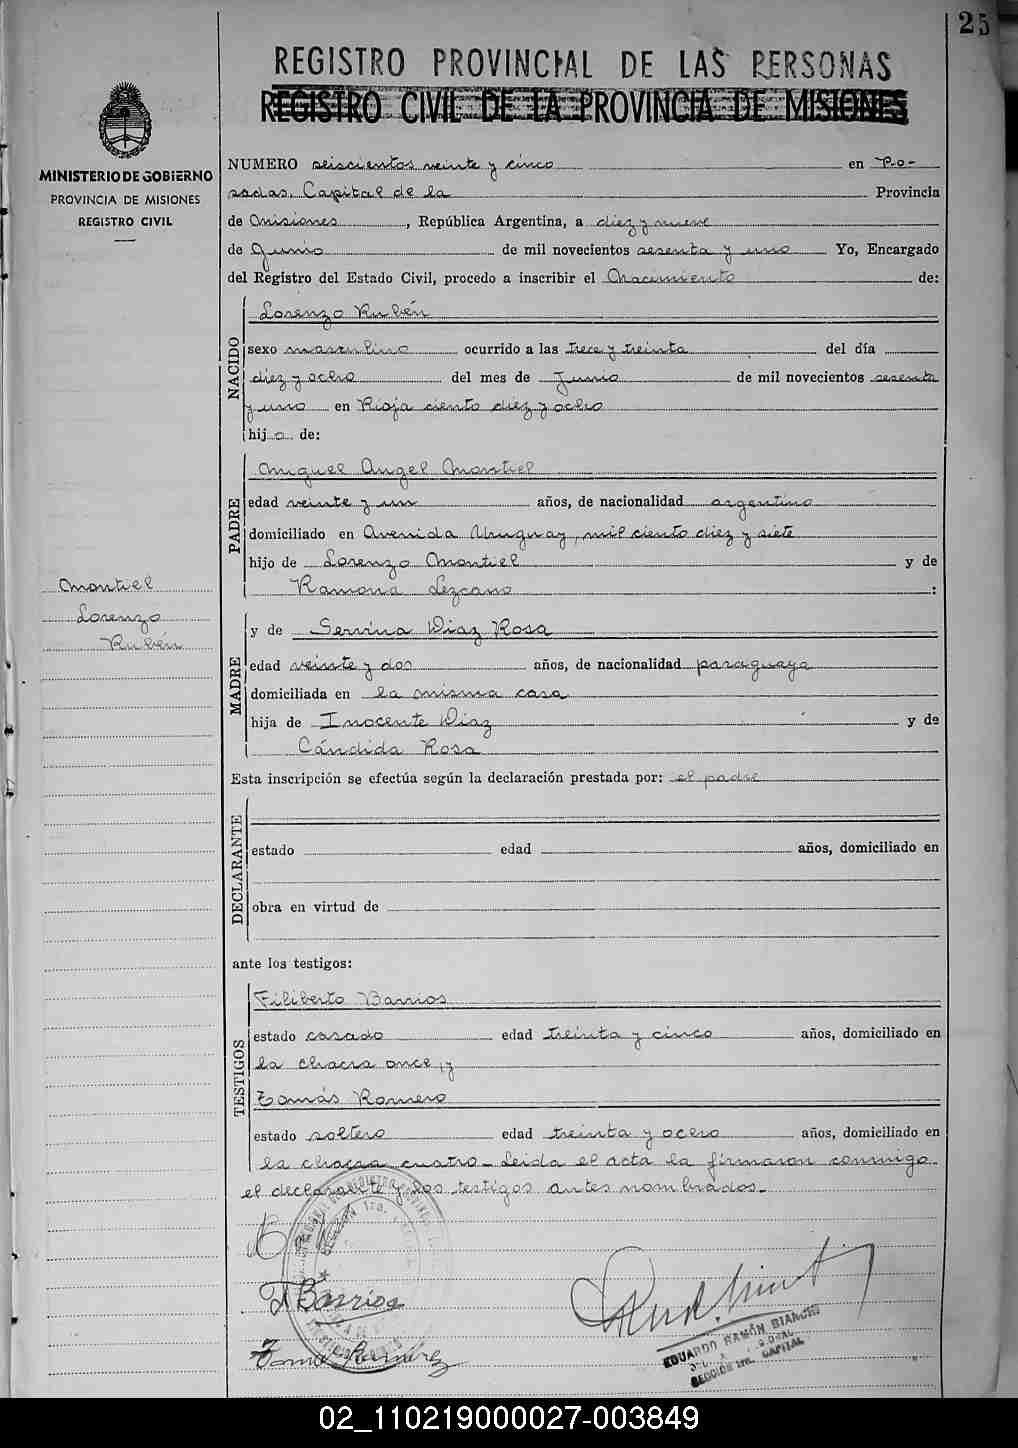 25
REGISTRO PROVINCIAL DE LAS PERSONAS
REGISTRO CIVIL DE LA PROVINCIA DE MISIONES
MINISTERIO DE GOBIERNO
PROVINCIA DE MISIONES
REGISTRO CIVIL
NUMERO seiscientos veinte y cinco en Po-
sadas, Capital de la Provincia
de Misiones, República Argentina, a diez y nueve
de Junio de mil novecientos sesenta y uno Yo, Encargado
del Registro del Estado Civil, procedo a inscribir el Nacimiento de:
NACIDO
Lorenzo Rubén
sexo masculino ocurrido a las trece y treinta del día
diez y ocho del mes de Junio de mil novecientos sesenta
y uno en Rioja ciento diez y ocho
hijo de:
PADRE
Miguel Angel Montiel
edad veinte y un años, de nacionalidad argentino
domiciliado en Avenida Uruguay, mil ciento diez y siete
hijo de Lorenzo Montiel y de
Ramona Lezcano :
Montiel
Lorenzo
Rubén
MADRE
y de Servina Diaz Rosa
edad veinte y dos años, de nacionalidad paraguaya
domiciliada en la misma casa
hija de Inocente Diaz y de
Cándida Rosa
Esta inscripción se efectúa según la declaración prestada por: el padre
DECLARANTE
estado edad años, domiciliado en
obra en virtud de
ante los testigos:
TESTIGOS
Filiberto Barrios
estado casado edad treinta y cinco años, domiciliado en
la chacra once, y
Tomás Romero
estado soltero edad treinta y ocho años, domiciliado en
la chacra cuatro_ Leida el acta la firmaron conmigo
el declarante y los testigos antes nombrados._
F Barrios
EDUARDO RAMÓN BIANCHI
SECCIÓN 1ra. CAPITAL
02_110219000027-003849